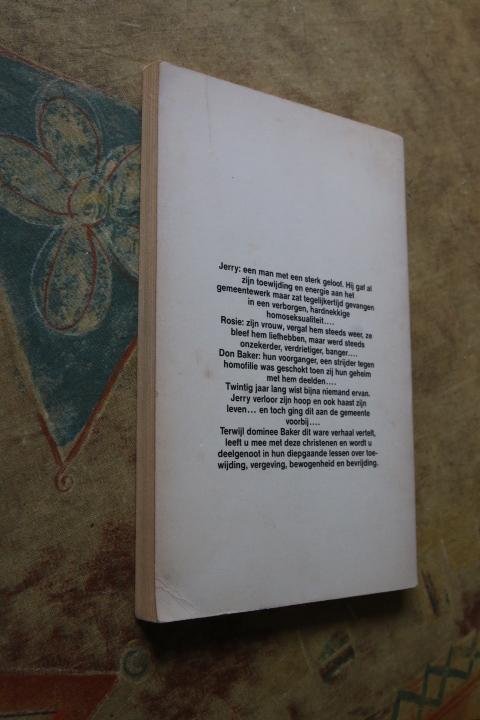 Jerry: een man met een sterk geloof. Hij gaf al
zijn toewijding en energie aan het
gemeentewerk maar zat tegelijkertijd gevangen
in een verborgen, hardnekkige
homoseksualiteit....
Rosie: zijn vrouw, vergaf hem steeds weer, ze
bleef hem liefhebben, maar werd steeds
onzekerder, verdrietiger, banger....
Don Baker: hun voorganger, een strijder tegen
homofilie was geschokt toen zij hun geheim
met hem deelden....
Twintig jaar lang wist bijna niemand ervan.
Jerry verloor zijn hoop en ook haast zijn
leven... en toch ging dit aan de gemeente
voorbij....
Terwijl dominee Baker dit ware verhaal vertelt,
leeft u mee met deze christenen en wordt u
deelgenoot in hun diepgaande lessen over toe-
wijding, vergeving, bewogenheid en bevrijding.